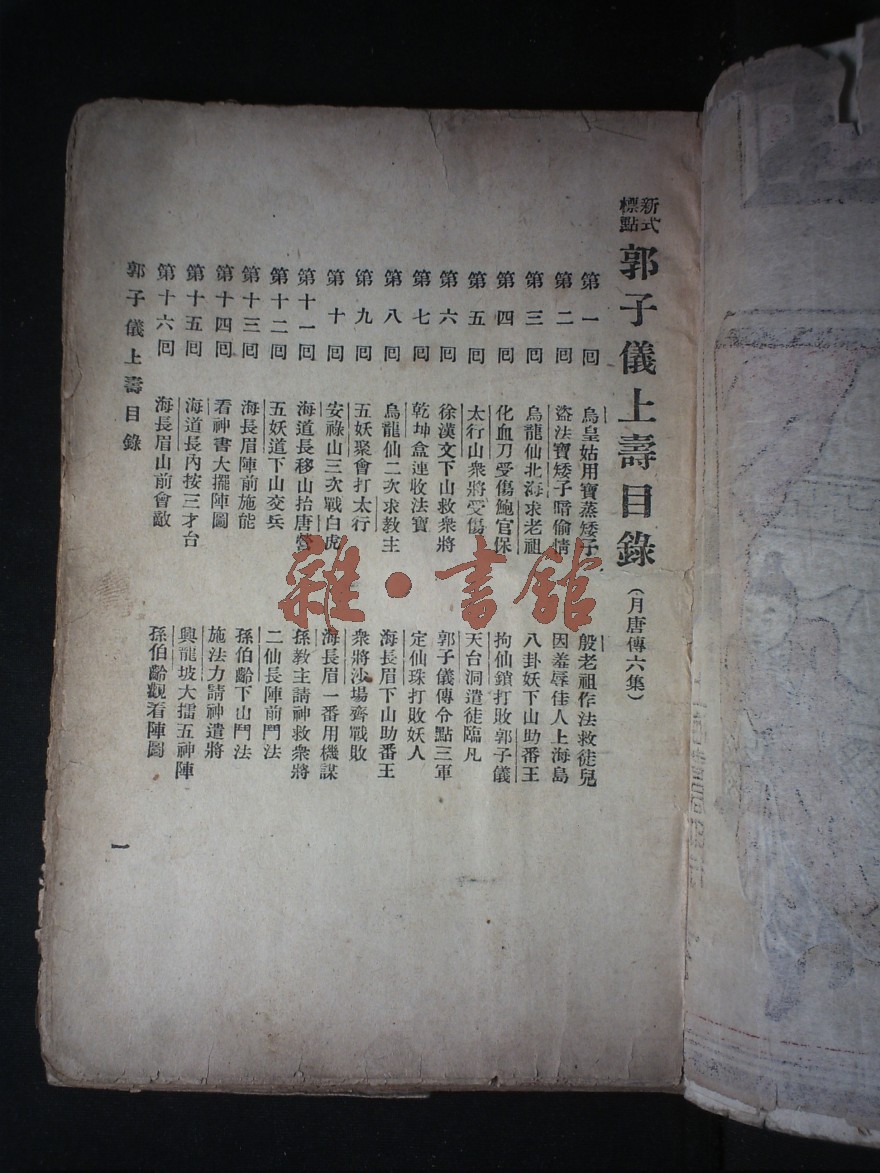 新式標點 郭子儀上壽目錄（月唐傳六集）
第一回 烏皇姑用寶蒸矮子 殷老祖作法救徒兒
第二回 盜法寶矮子暗偷情 因羞辱佳人上海島
第三回 烏龍仙北海求老祖 八卦妖下山助番王
第四回 化血刀受傷鮑官保 拘仙鎖打敗郭子儀
第五回 太行山衆將受傷 天台洞遣徒臨凡
第六回 徐漢文下山救衆將 郭子儀傳令點三軍
第七回 乾坤盒連收法寶 定仙珠打敗妖人
第八回 烏龍仙二次求教主 海長眉下山助番王
第九回 五妖聚會打太行 衆將沙場齊戰敗
第十回 安祿山三次戰白虎 海長眉一番用機謀
第十一回 海道長移山抬唐營 孫教主請神救衆將
第十二回 五妖道下山交兵 二仙長陣前鬥法
第十三回 海長眉陣前施能 孫伯齡下山鬥法
第十四回 看神書大擺陣圖 施法力請神遣將
第十五回 海道長內按三才台 興龍坡大擂五神陣
第十六回 海長眉山前會敵 孫伯齡觀看陣圖
郭子儀上壽目錄
一
雜·書館